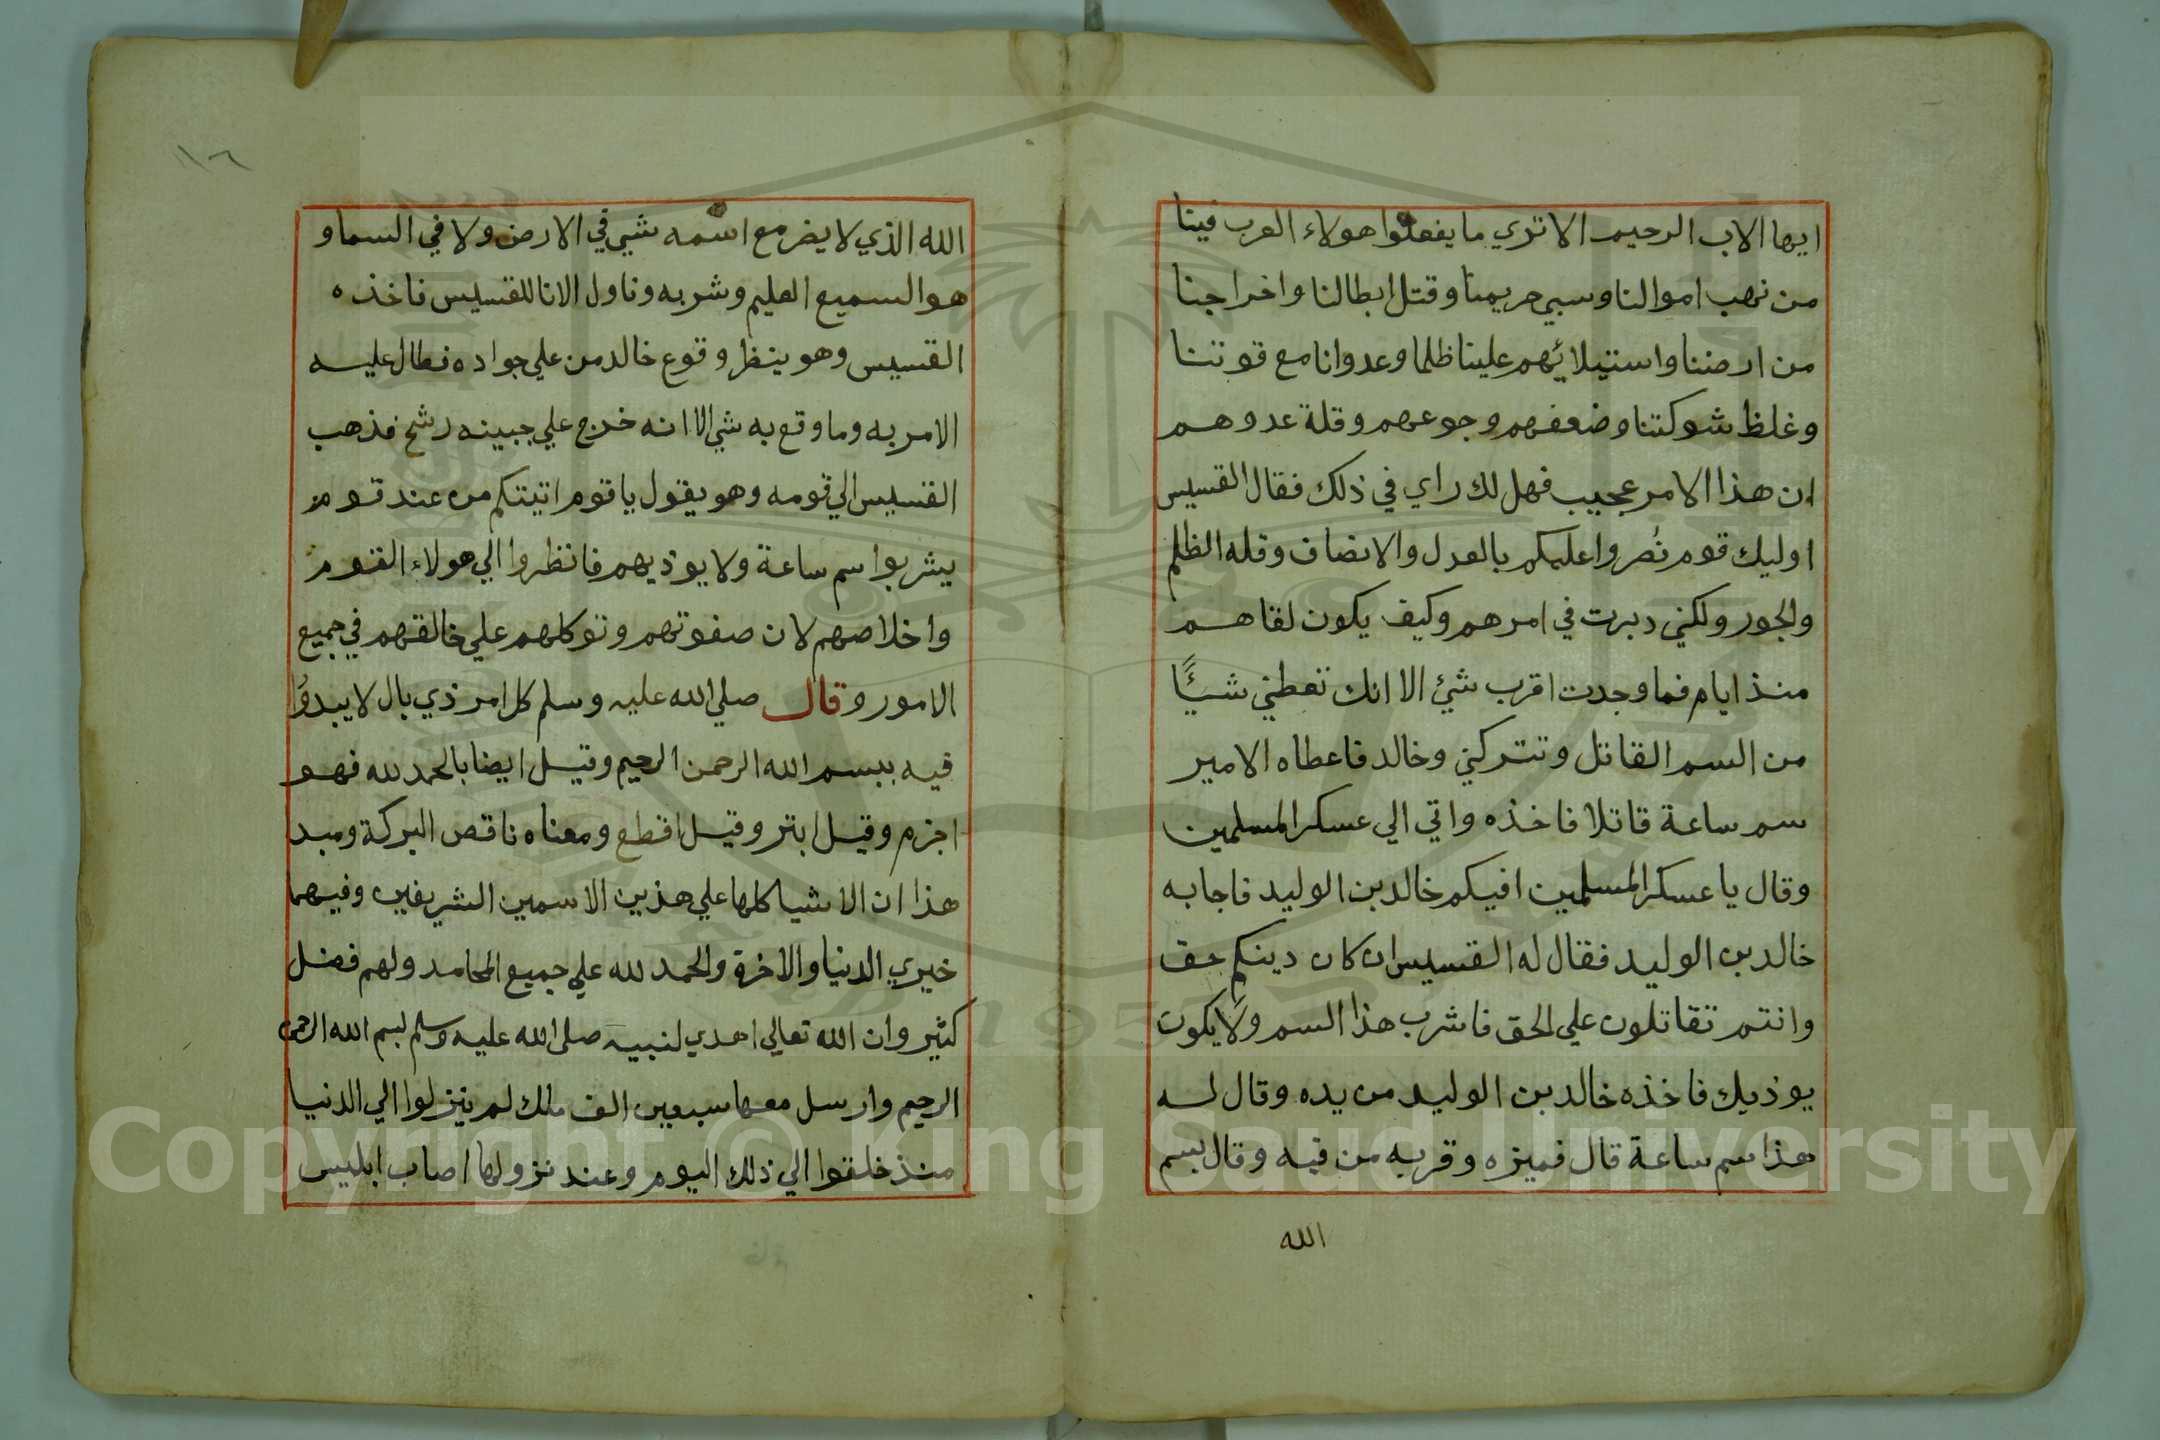 ايها الاب الرحيم الا تري ما يفعلوا هولاء العرب فينا
من نهب اموالنا وسبي حريمنا وقتل ابطالنا واخراجنا
من ارضنا واستيلائهم علينا ظلما وعدوانا مع قوتنا
وغلظ شوكتنا وضعفهم وجوعهم وقلة عدوهم
ان هذا الامر عجيب فهل لك راي في ذلك فقال القسيس
اوليك قوم نُصروا عليكم بالعدل والانصاف وقله الظلم
والجور ولكني دبرت في امرهم وكيف يكون لقاهم
منذ ايام فما وجدت اقرب شئ الا انك تعطني شيئًا
من السم القاتل وتتركني وخالد فاعطاه الامير
سم ساعة قاتلا فاخذه واتي الي عسكر المسلمين
وقال يا عسكر المسلمين افيكم خالد بن الوليد فاجابه
خالد بن الوليد فقال له القسيس ان كان دينكم حق
وانتم تقاتلون علي الحق فاشرب هذا السم ولا يكون
يوذيك فاخذه خالد بن الوليد من يده وقال له
هذا سم ساعة قال فميزه وقربه من فيه وقال بسم
الله
١٦
الله الذي لا يضر مع اسمه شيي في الارض ولا في السما و
هو السميع العليم وشربه وناول الانا للقسيس فاخذه
القسيس وهو ينظر وقوع خالد من علي جواده فطال عليه
الامر به وما وقع به شي الا انه خرج علي جبينه رشح فذهب
القسيس الي قومه وهو يقول يا قوم اتيتكم من عند قوم
يشربوا سم ساعة ولا يوذيهم فانظروا الي هولاء القوم
واخلاصهم لان صفوتهم وتوكلهم علي خالقهم في جميع
الامور وقال صلي الله عليه وسلم كل امر ذي بال لا يبدوا
فيه ببسم الله الرحمن الرحيم وقيل ايضا بالحمد لله فهو
اجزم وقيل ابتر وقيل اقطع ومعناه ناقص البركة ومبد
هذا ان الاشيا كلها علي هذين الاسمين الشريفين وفيهما
خيري الدنيا والاخرة والحمد لله علي جميع المحامد ولهم فضل
كثير وان الله تعالي اهدي لنبيه صلي الله عليه وسلم بسم الله الرحمن
الرحيم وارسل معها سبعين الف ملك لم ينزلوا الي الدنيا
منذ خلقوا الي ذلك اليوم وعند نزولها اصاب ابليس
Copyright © King Saud University